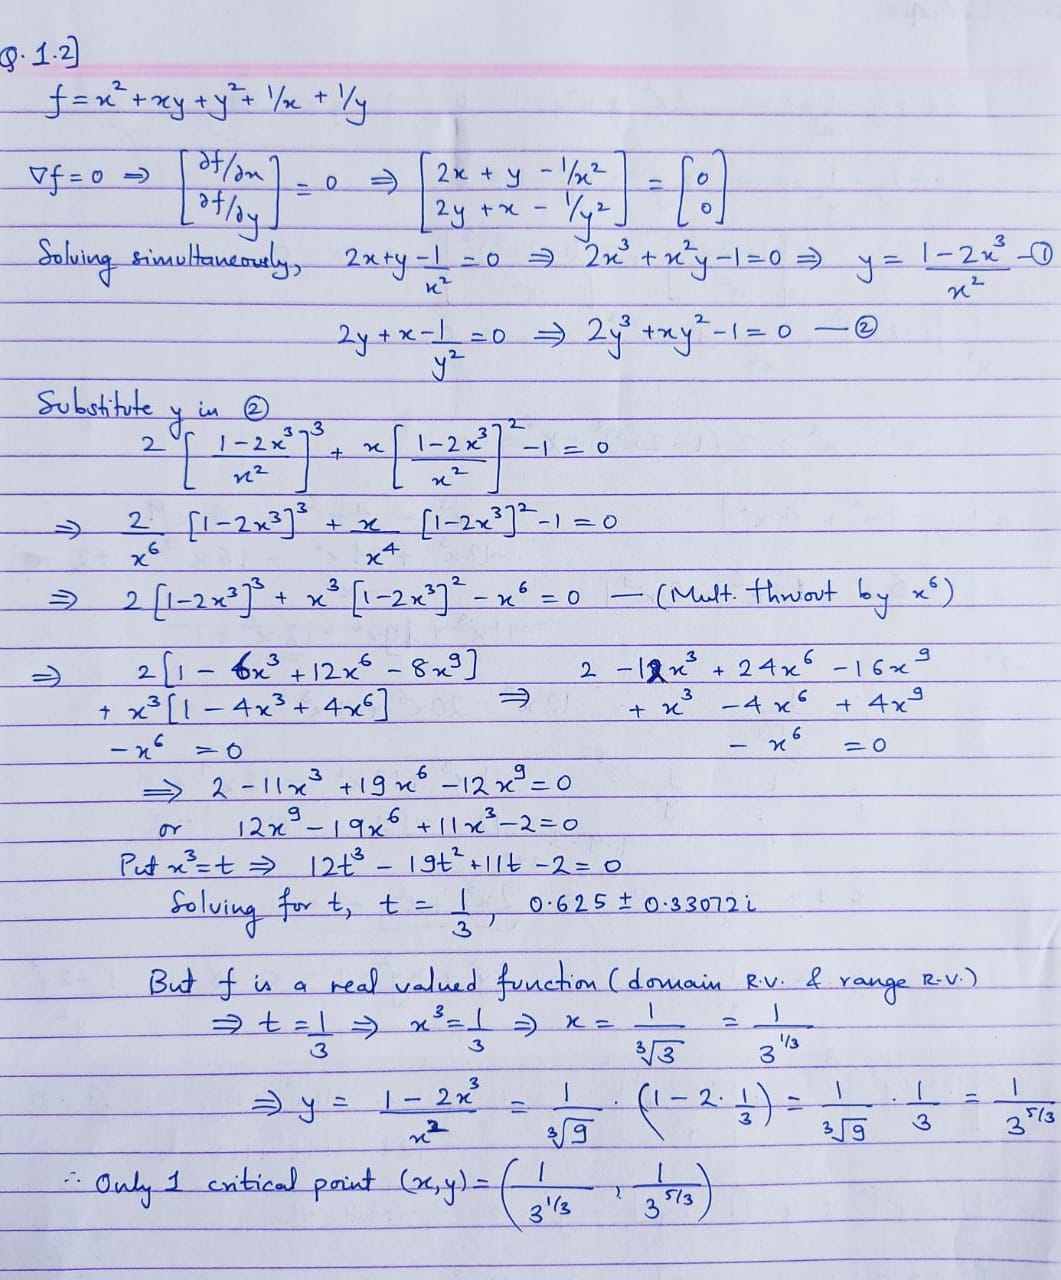 Q. 1.2]
f = x² + xy + y² + 1/x + 1/y
∇f = 0 ⇒ [∂f/∂x ; ∂f/∂y] = 0 ⇒ [2x + y - 1/x² ; 2y + x - 1/y²] = [0 ; 0]
Solving simultaneously, 2x+y-1/x² = 0 ⇒ 2x³ + x²y - 1 = 0 ⇒ y = (1-2x³)/x² -①
2y + x - 1/y² = 0 ⇒ 2y³ + xy² - 1 = 0 — ②
Substitute y in ②
2 [(1-2x³)/x²]³ + x [(1-2x³)/x²]² - 1 = 0
⇒ 2/x⁶ [1-2x³]³ + x/x⁴ [1-2x³]² - 1 = 0
⇒ 2 [1-2x³]³ + x³ [1-2x³]² - x⁶ = 0 — (Mult. thruout by x⁶)
⇒ 2[1 - 6x³ + 12x⁶ - 8x⁹] ⇒ 2 - 12x³ + 24x⁶ - 16x⁹
+ x³[1 - 4x³ + 4x⁶] + x³ - 4x⁶ + 4x⁹
- x⁶ = 0 - x⁶ = 0
⇒ 2 - 11x³ + 19x⁶ - 12x⁹ = 0
or 12x⁹ - 19x⁶ + 11x³ - 2 = 0
Put x³ = t ⇒ 12t³ - 19t² + 11t - 2 = 0
Solving for t, t = 1/3, 0.625 ± 0.33072i
But f is a real valued function (domain R.V. & range R.V.)
⇒ t = 1/3 ⇒ x³ = 1/3 ⇒ x = 1/∛3 = 1/3^(1/3)
⇒ y = (1 - 2x³)/x² = 1/∛9 · (1 - 2·1/3) = 1/∛9 · 1/3 = 1/3^(5/3)
∴ Only 1 critical point (x,y) = (1/3^(1/3), 1/3^(5/3))